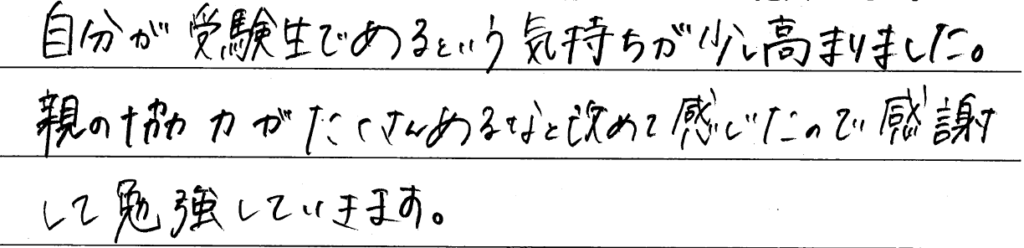 自分が受験生であるという気持ちが少し高まりました。
親の協力がたくさんあるなと改めて感じたので感謝
して勉強していきます。